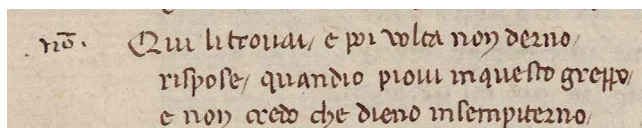 nō. Qui li trouai/ e poi volta non derno/
rispose/ quandio pioui in questo greppo/
e non credo che dieno in sempiterno/